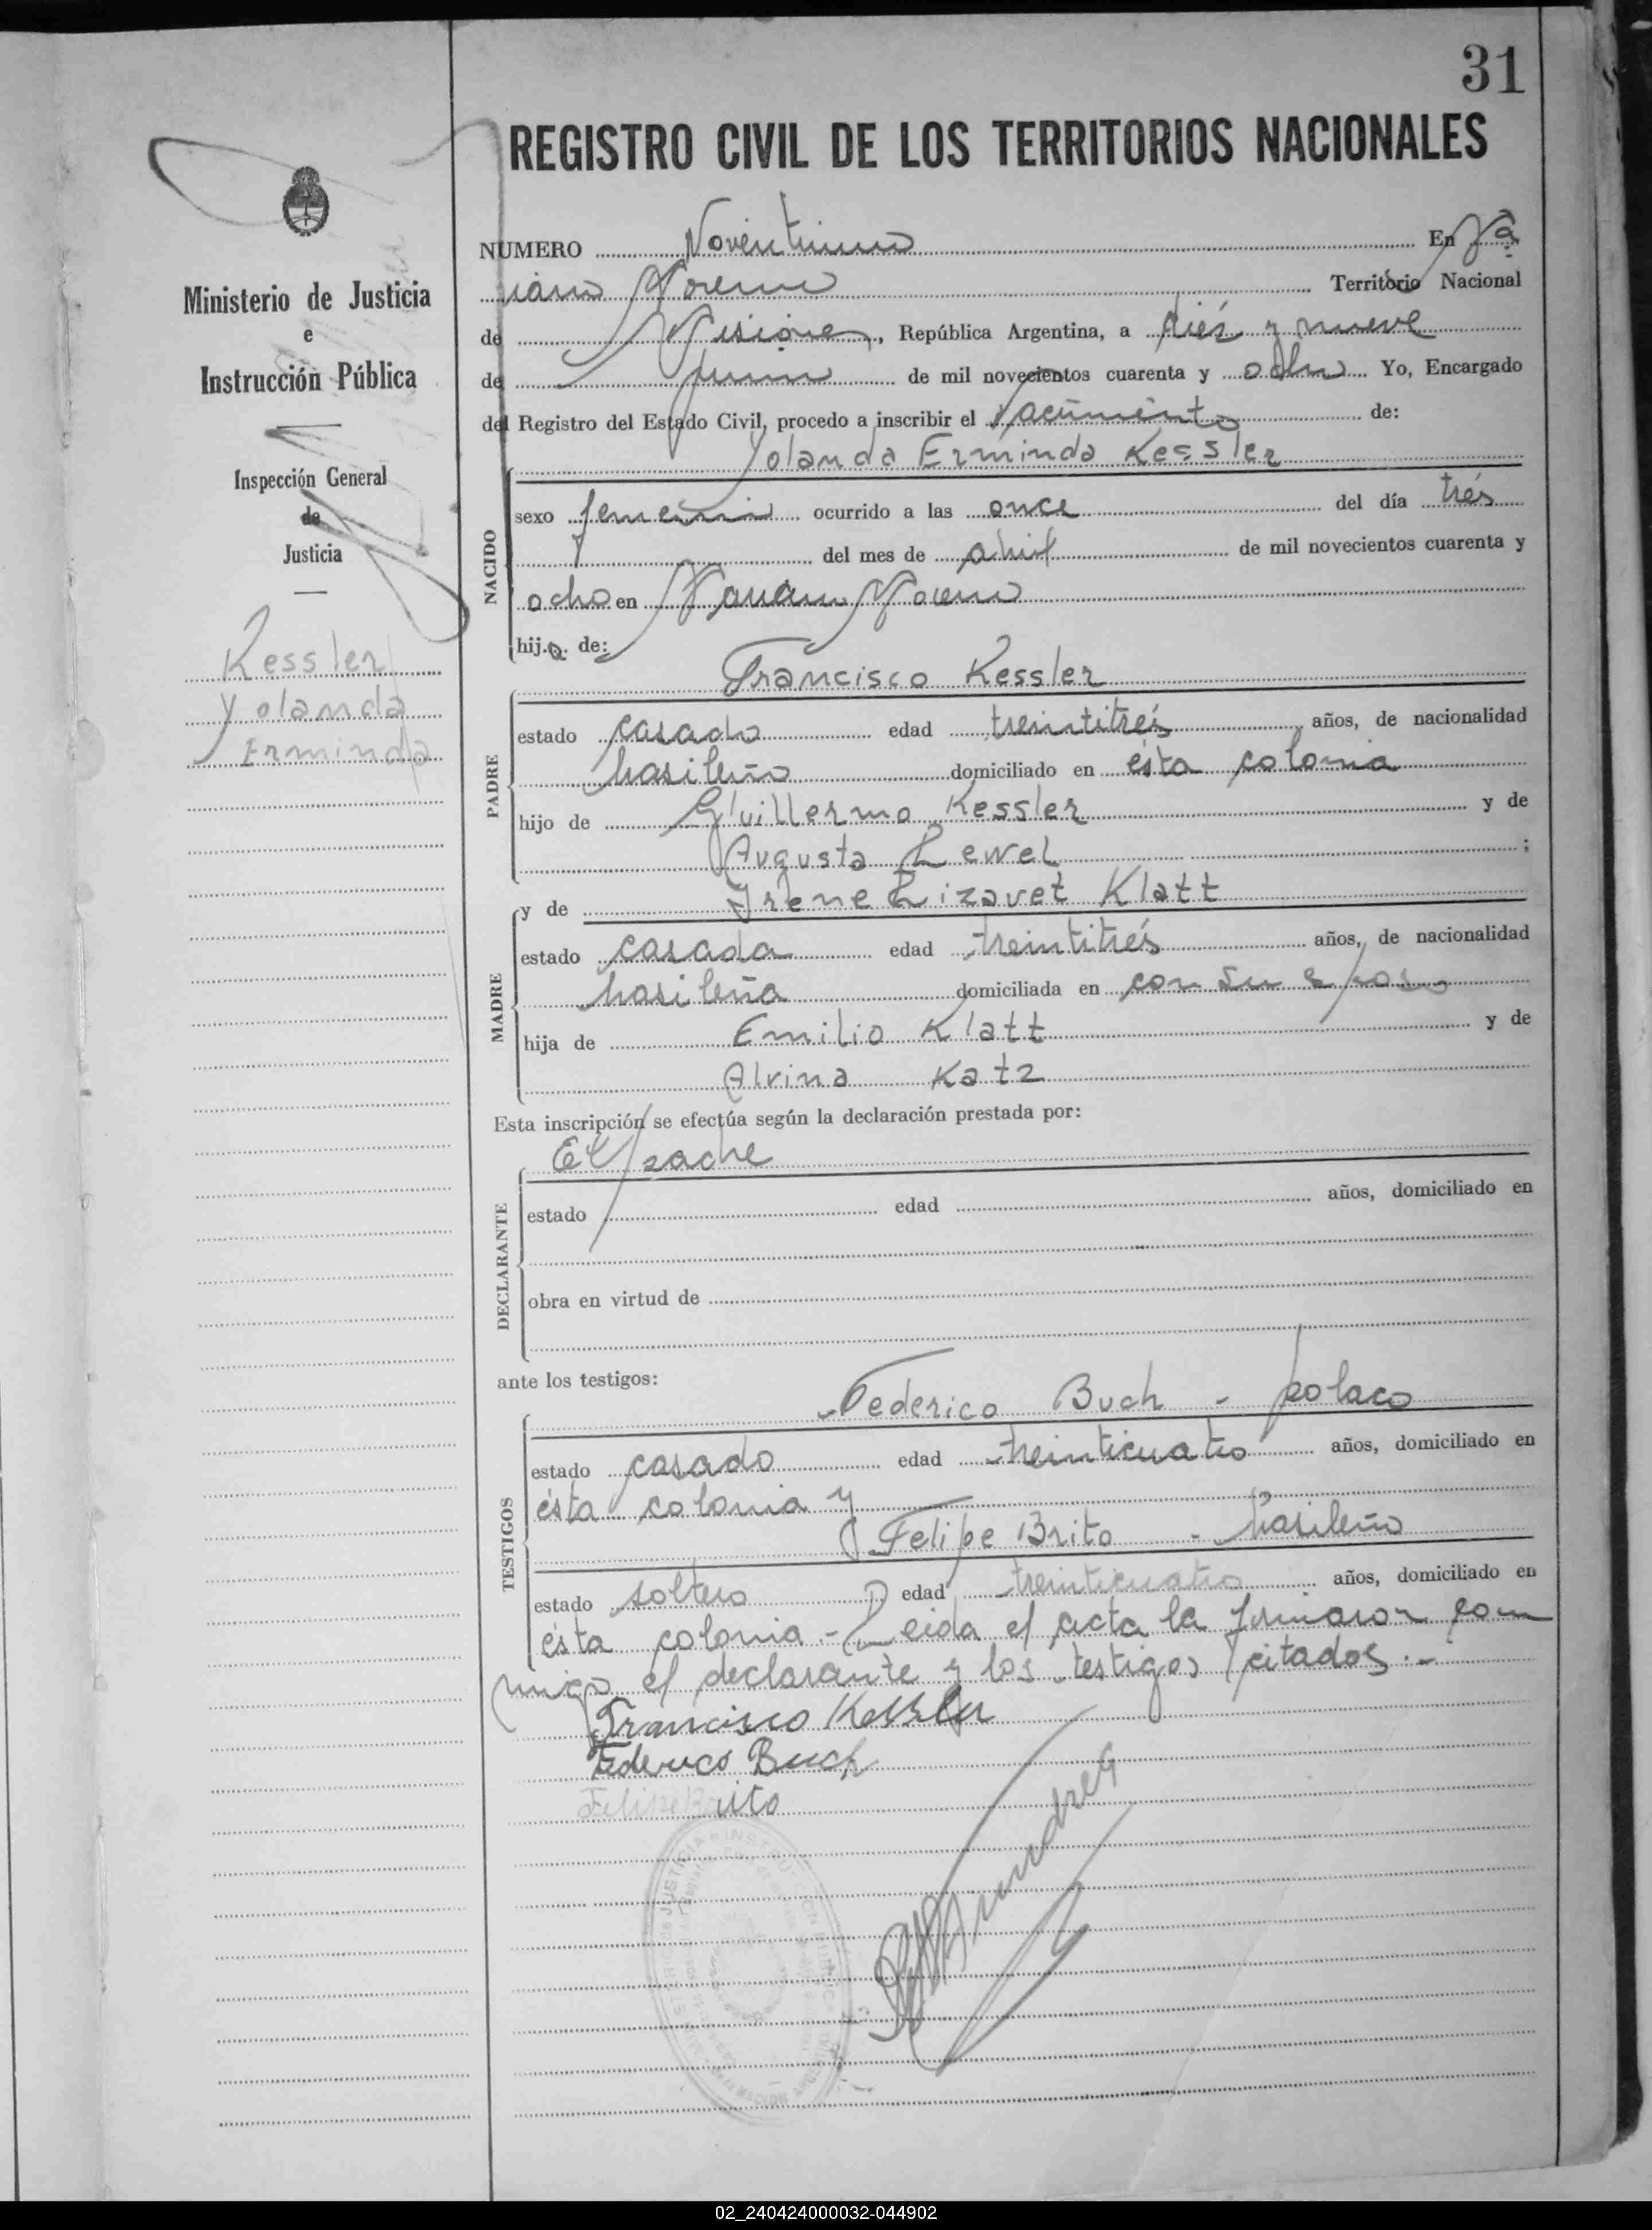 31
REGISTRO CIVIL DE LOS TERRITORIOS NACIONALES
Ministerio de Justicia
e
Instrucción Pública
Inspección General
de
Justicia
Kessler
Yolanda
Erminda
NUMERO Noventiuno En Ma
riano Moreno Territorio Nacional
de Misiones, República Argentina, a diés y nueve
de junio de mil novecientos cuarenta y ocho Yo, Encargado
del Registro del Estado Civil, procedo a inscribir el nacimiento de:
Yolanda Erminda Kessler
NACIDO
sexo femenino ocurrido a las once del día trés
del mes de abril de mil novecientos cuarenta y
ocho en Mariano Moreno
hija de:
Francisco Kessler
PADRE
estado casado edad treintitrés años, de nacionalidad
brasileño domiciliado en ésta colonia
hijo de Guillermo Kessler y de
Augusta Lewel ;
y de Irene Lizavet Klatt
MADRE
estado casada edad treintitrés años, de nacionalidad
brasileña domiciliada en con su esposo
hija de Emilio Klatt y de
Alvina Katz
Esta inscripción se efectúa según la declaración prestada por:
El padre
DECLARANTE
estado edad años, domiciliado en
obra en virtud de
ante los testigos:
Federico Buch - polaco
TESTIGOS
estado casado edad treinticuatro años, domiciliado en
ésta colonia y
Felipe Brito - brasileño
estado soltero edad treinticuatro años, domiciliado en
ésta colonia.- Leida el acta la firmaron con
migo el declarante y los testigos citados.-
Francisco Kessler
Federico Buch
Felipe Brito
02_240424000032-044902